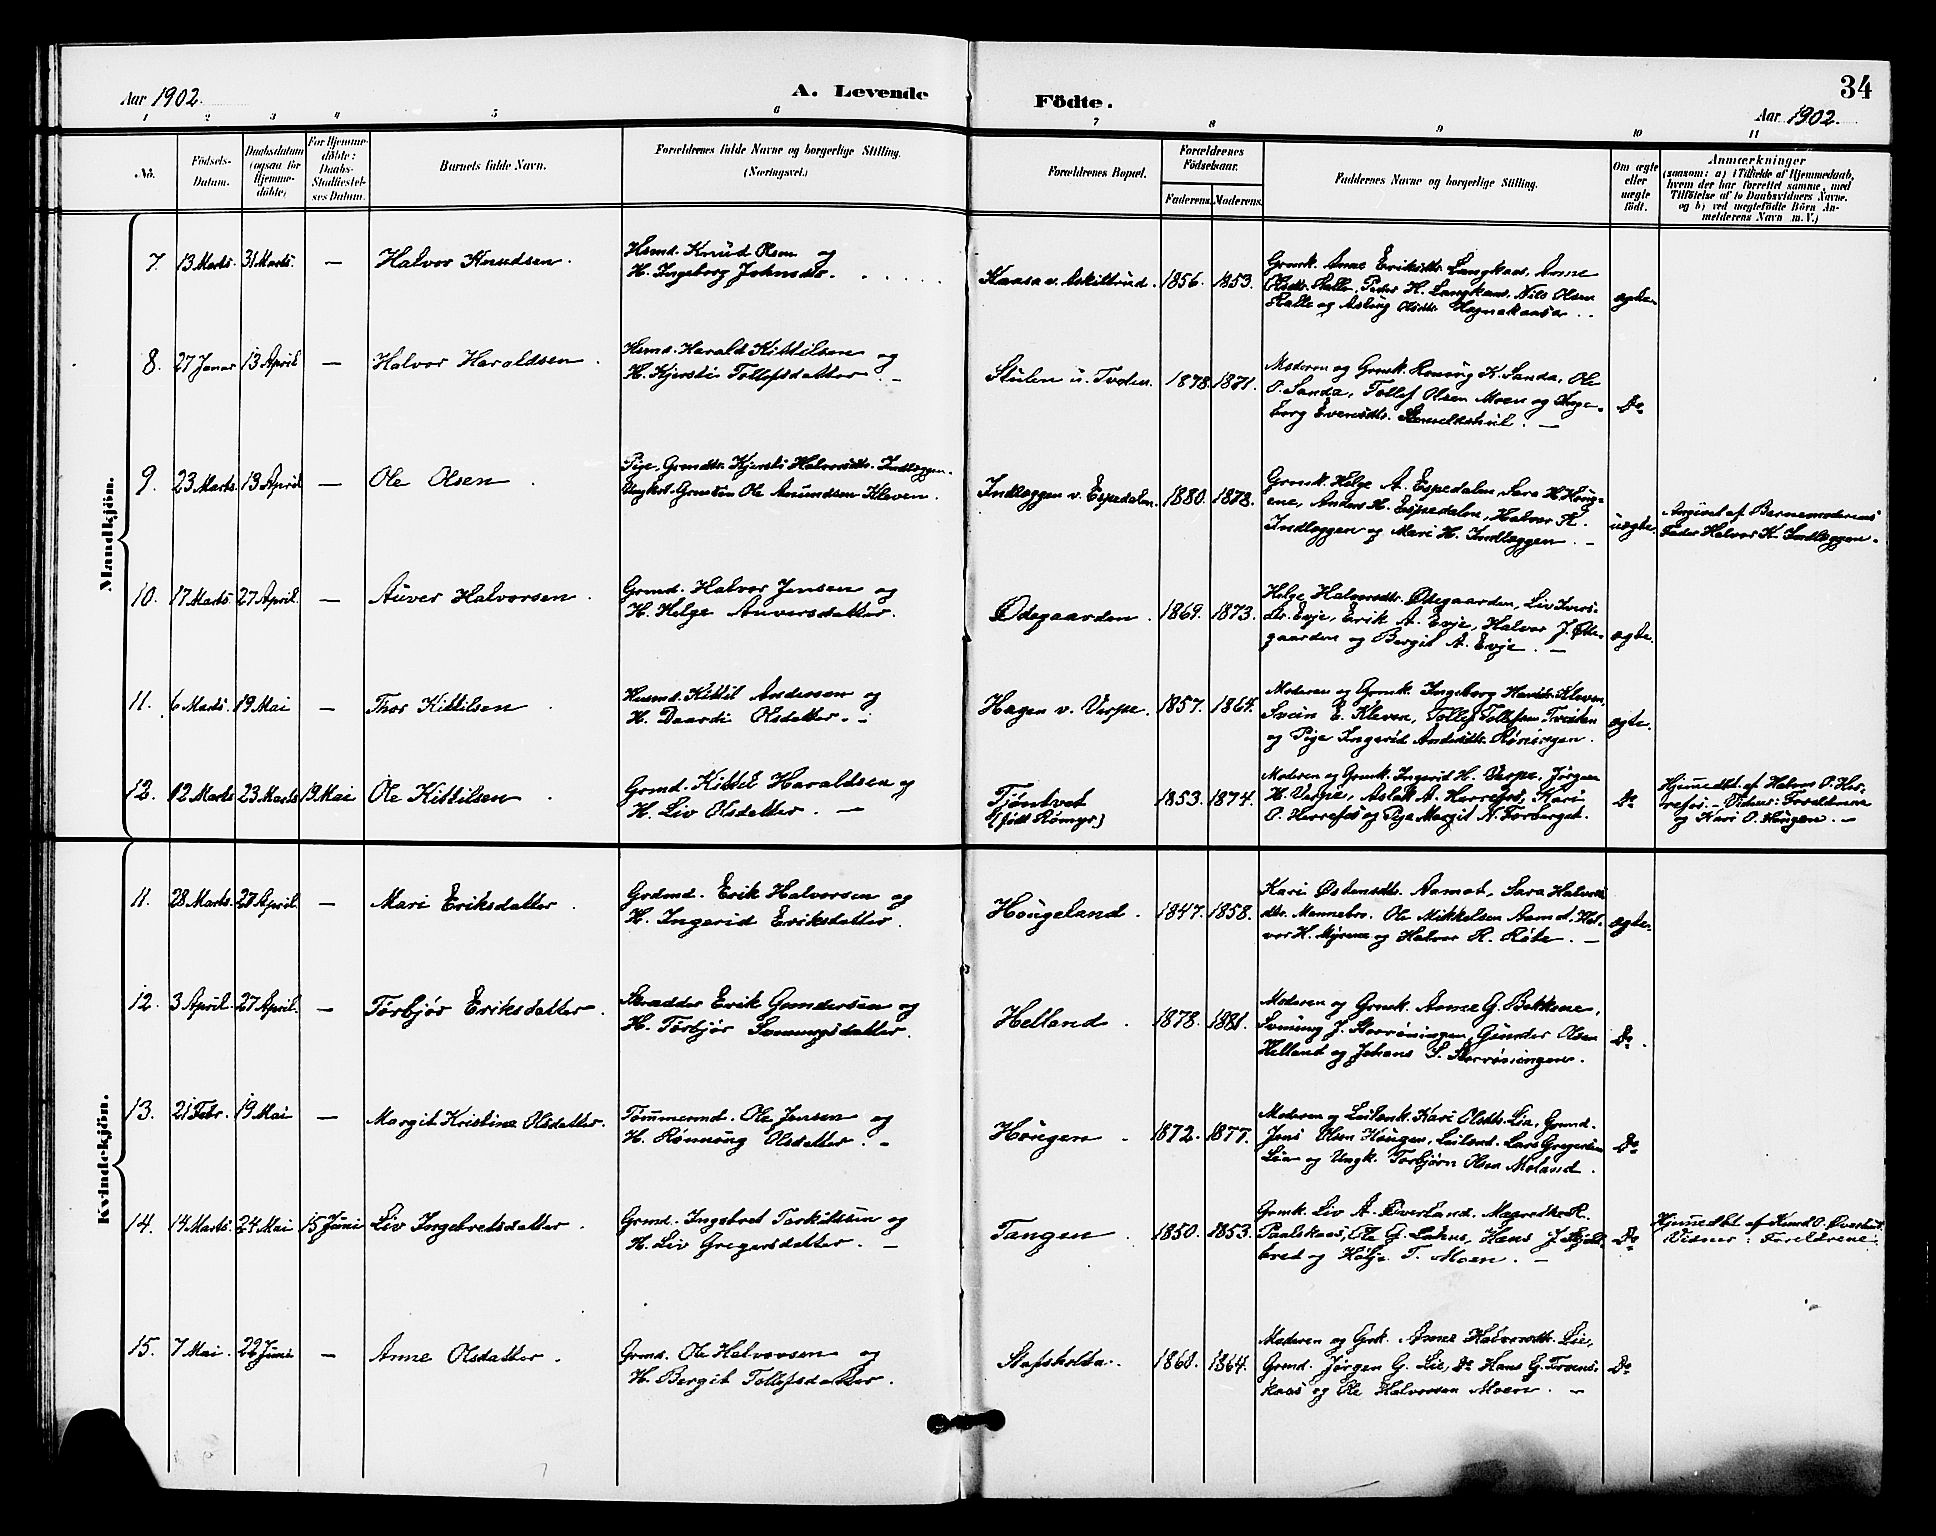 34
Aar 1902.
A. Levende Födte.
Aar 1902.
1 2 3 4 5 6 7 8 9 10 11
No.
Födsels-Datum.
Daabsdatum (ogsaa for Hjemmedöbte)
For Hjemmedöbte: Daabs-Stadfæstelses Datum.
Barnets fulde Navn.
Forældrenes fulde Navne og borgerlige Stilling. (Næringsvei.)
Forældrenes Bopæl.
Forældrenes Födselsaar.
Faderens. Moderens.
Faddernes Navne og borgerlige Stilling.
Om ægte eller uægte födt.
Anmærkninger
(saasom: a) i Tilfælde af Hjemmedaab,
hvem der har forrettet samme, med
Tilföielse af to Daabsvidners Navne.
og b) ved uægtefödte Börn An-
melderens Navn m. V.)
Mandkjön.
7. 13 Marts. 31 Marts. — Halvor Knudsen.
Hsmd. Knud Olsen og
H. Ingeborg Johnsdtr.
Kaasa v. Askiltrud. 1856. 1853.
Grmk. Anne Eriksdtr. Langkaas, Anne
Olsdtr. Ralle, Peder H. Langkaas, Nils Olsen
Ralle og Aslaug Olsdtr. Hognakaasa
ægte.
8. 27 Januar 13 April — Halvor Haroldsen.
Hsmd. Harald Kittilsen og
H. Kjersti Tollefsdatter. —
Stulen u. Tveten. 1878. 1871.
Moderen og Grmk. Rønnög K. Sanda, Ole
O. Sanda, Tollef Olsen Moen og Inge-
borg Evensdtr. —
Do
9. 23 Marts 13 April — Ole Olsen.
Pige, Grmdtr. Kjersti Halvorsdtr. Indlæggen.
Ungkar. Grmsøn Ole Amundsen Kleven.
Indlæggen v. Espedalen. 1880. 1878.
Grmk. Helge A. Espedalen, Sara H. Haug-
ene, Anders H. Espedalen, Halvor K.
Indlæggen og Mari H. Indlæggen. —
uægte.
Angivet af Barnemoderens
Fader Halvor K. Indlæggen.
10. 17 Marts 27 April. — Auver Halvorsen.
Grmd. Halvor Jensen og
H. Helge Auversdatter.
Ødegaarden. 1869. 1873.
Helge Halvorsdtr. Ødegaarden, Liv Ivers-
dtr. Evje, Erik A. Evje, Halvor J. Øde-
gaarden og Bergit A. Evje. —
ægte.
11. 6 Marts. 19 Mai — Thor Kittilsen.
Husmd. Kittil Andersen og
H. Daardi Olsdatter. —
Hagen v. Verpe. 1857. 1864.
Moderen og Grmk. Ingeborg Haavdr. Kleven,
Svein E. Kleven, Tollef Tollefsen Tveiten
og Pige Ingerid Andersdtr. Röningen.
ægte.
12. 12 Marts 23 Marts 19 Mai Ole Kittilsen.
Grmd. Kittel Haraldsen og
H. Liv Olsdatter. —
Tjöntvet
(födt Römyr.)
1853. 1874.
Moderen og Grmk. Ingerid H. Verpe, Jörgen
H. Verpe, Aslak A. Herrefos, Kari
O. Herrefos og Pige Margit N. Torberget.
Do
Hjemmedbt. af Halvor O. Her-
refos. — Vidner: Forældrene
og Kari O. Haugen. —
Kvindekjön.
11. 28 Marts. 27 April. — Mari Eriksdatter.
Grdmd. Erik Halvorsen og
H. Ingerid Eriksdatter.
Haugeland. 1847. 1858.
Kari Östensdtr. Aamot, Sara Halvors-
dtr. Mannebro, Ole Mikkelsen Aamot, Hal-
vor H. Myrene og Halvor R. Röte. —
ægte.
12. 3 April. 27 April. — Torbjör Eriksdatter.
Skrædder Erik Gundersen og
H. Torbjör Sveinungsdatter.
Helland. 1878. 1881.
Moderen og Grmk. Anne G. Bakkene,
Sveinung J. Storröningen, Gunder Olsen
Helland og Johans S. Storröningen.
Do.
13. 21 Febr. 19 Mai — Margit Kristine Olsdatter.
Tömmermd. Ole Jensen og
H. Rönnaug Olsdatter. —
Haugen. 1872. 1877.
Moderen og Leilænk. Kari Olsdtr. Lia, Grmd.
Jens Olsen Haugen, Leilænd. Lars Gregersen
Lia og Ungk. Torbjörn Olsen Moland.
Do
14. 14 Marts. 24 Mai 15 Juni Liv Ingebretsdatter.
Grmd. Ingebret Torkildsen og
H. Liv Gregersdatter. —
Tangen. 1850. 1853.
Grmk. Liv A. Överland, Magrethe R.
Paalskaas, Ole G. Lohne, Hans J. Skjeld-
bred og Helje T. Moen. —
Do
Hjemmedbt. af Knud O.
Vidner: Forældrene.
15. 7 Mai. 22 Juni — Anne Olsdatter.
Grmd. Ole Halvorsen og
H. Bergit Tollefsdatter.
Stafsholta. 1860. 1864.
Moderen og Grk. Anne Halvorsdtr. Lie,
Grmd. Jörgen G. Lie, Do Hans G. Tveens-
kaas og Ole Halvorsen Moen. —
Do